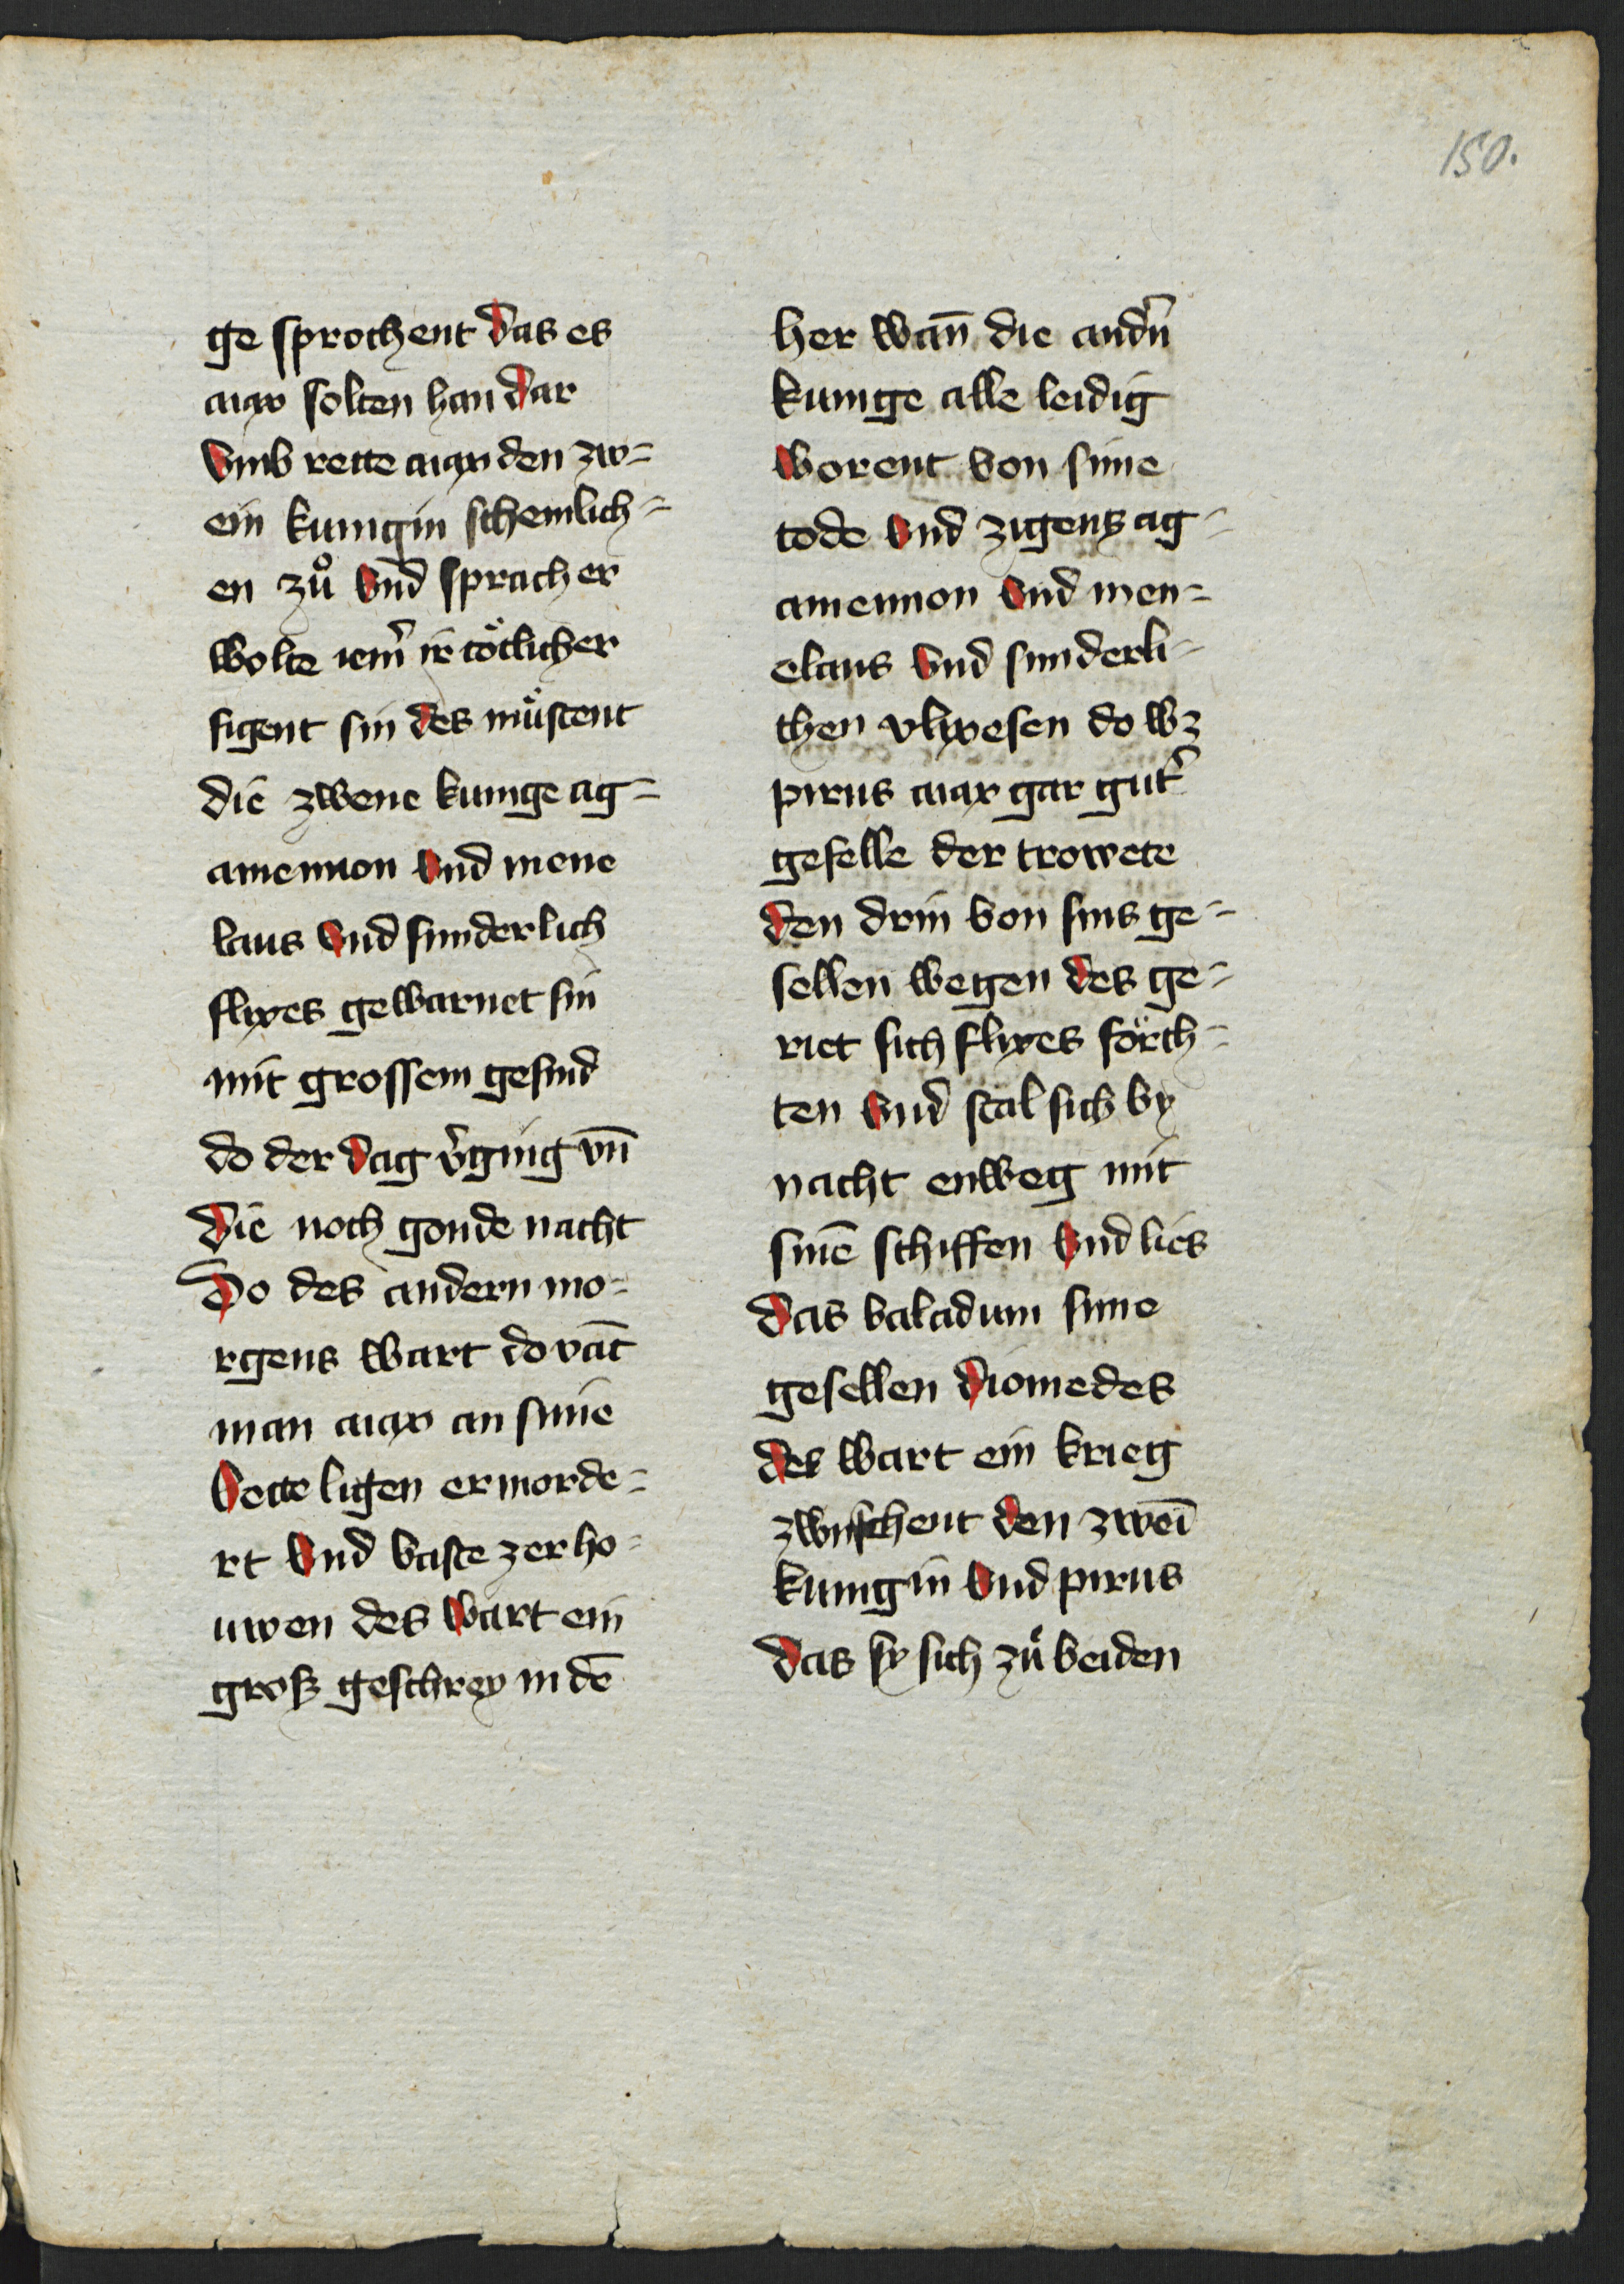 150.
ge sprochent das es
aiax solten han dar
vmb rette aiax den zw=
ein kunigin schemlich=
en zuͦ vnd sprach er
wolte iem̉ ir toͤtlicher
figent sin des muͤstent
die zwene kunige ag=
amennon vnd mene
laus vnd sunderlich
flixes gewarnet sin
mit grossem gesind
do der dag v̉ging vn̄
die noch gonde nacht
Do des andern mo=
rgens wart do vāt
man aiax an sinē
bette ligen ermorde=
rt vnd vaste zerho=
uwen des wart ein
grosz geschrey in dē
her wan̄ die andn̉
kunige alle leidig
worent von sime
tode vnd zigens ag=
amennon vnd men=
elaus vnd sunderli=
chen vlixesen do wz
pirus aiax gar gut̉
geselle der trowete
den drin von sins ge=
sellen wegen des ge=
riet sich flixes foͤrch=
ten vnd stal sich by
nacht enweg mit
sinē schiffen vnd lies
das baladum sime
gesellen diomedes
des wart ein krieg
zwuschent den zweī
kunigin vnd pirus
das sy sich zuͦ beiden